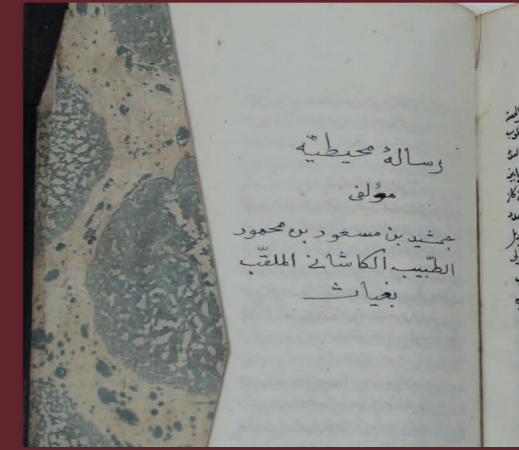 رسالهٔ محيطيّه
مؤلفى
جمشيد بن مسعود بن محمود
الطّبيب الكاشانى الملقّب
بغياث